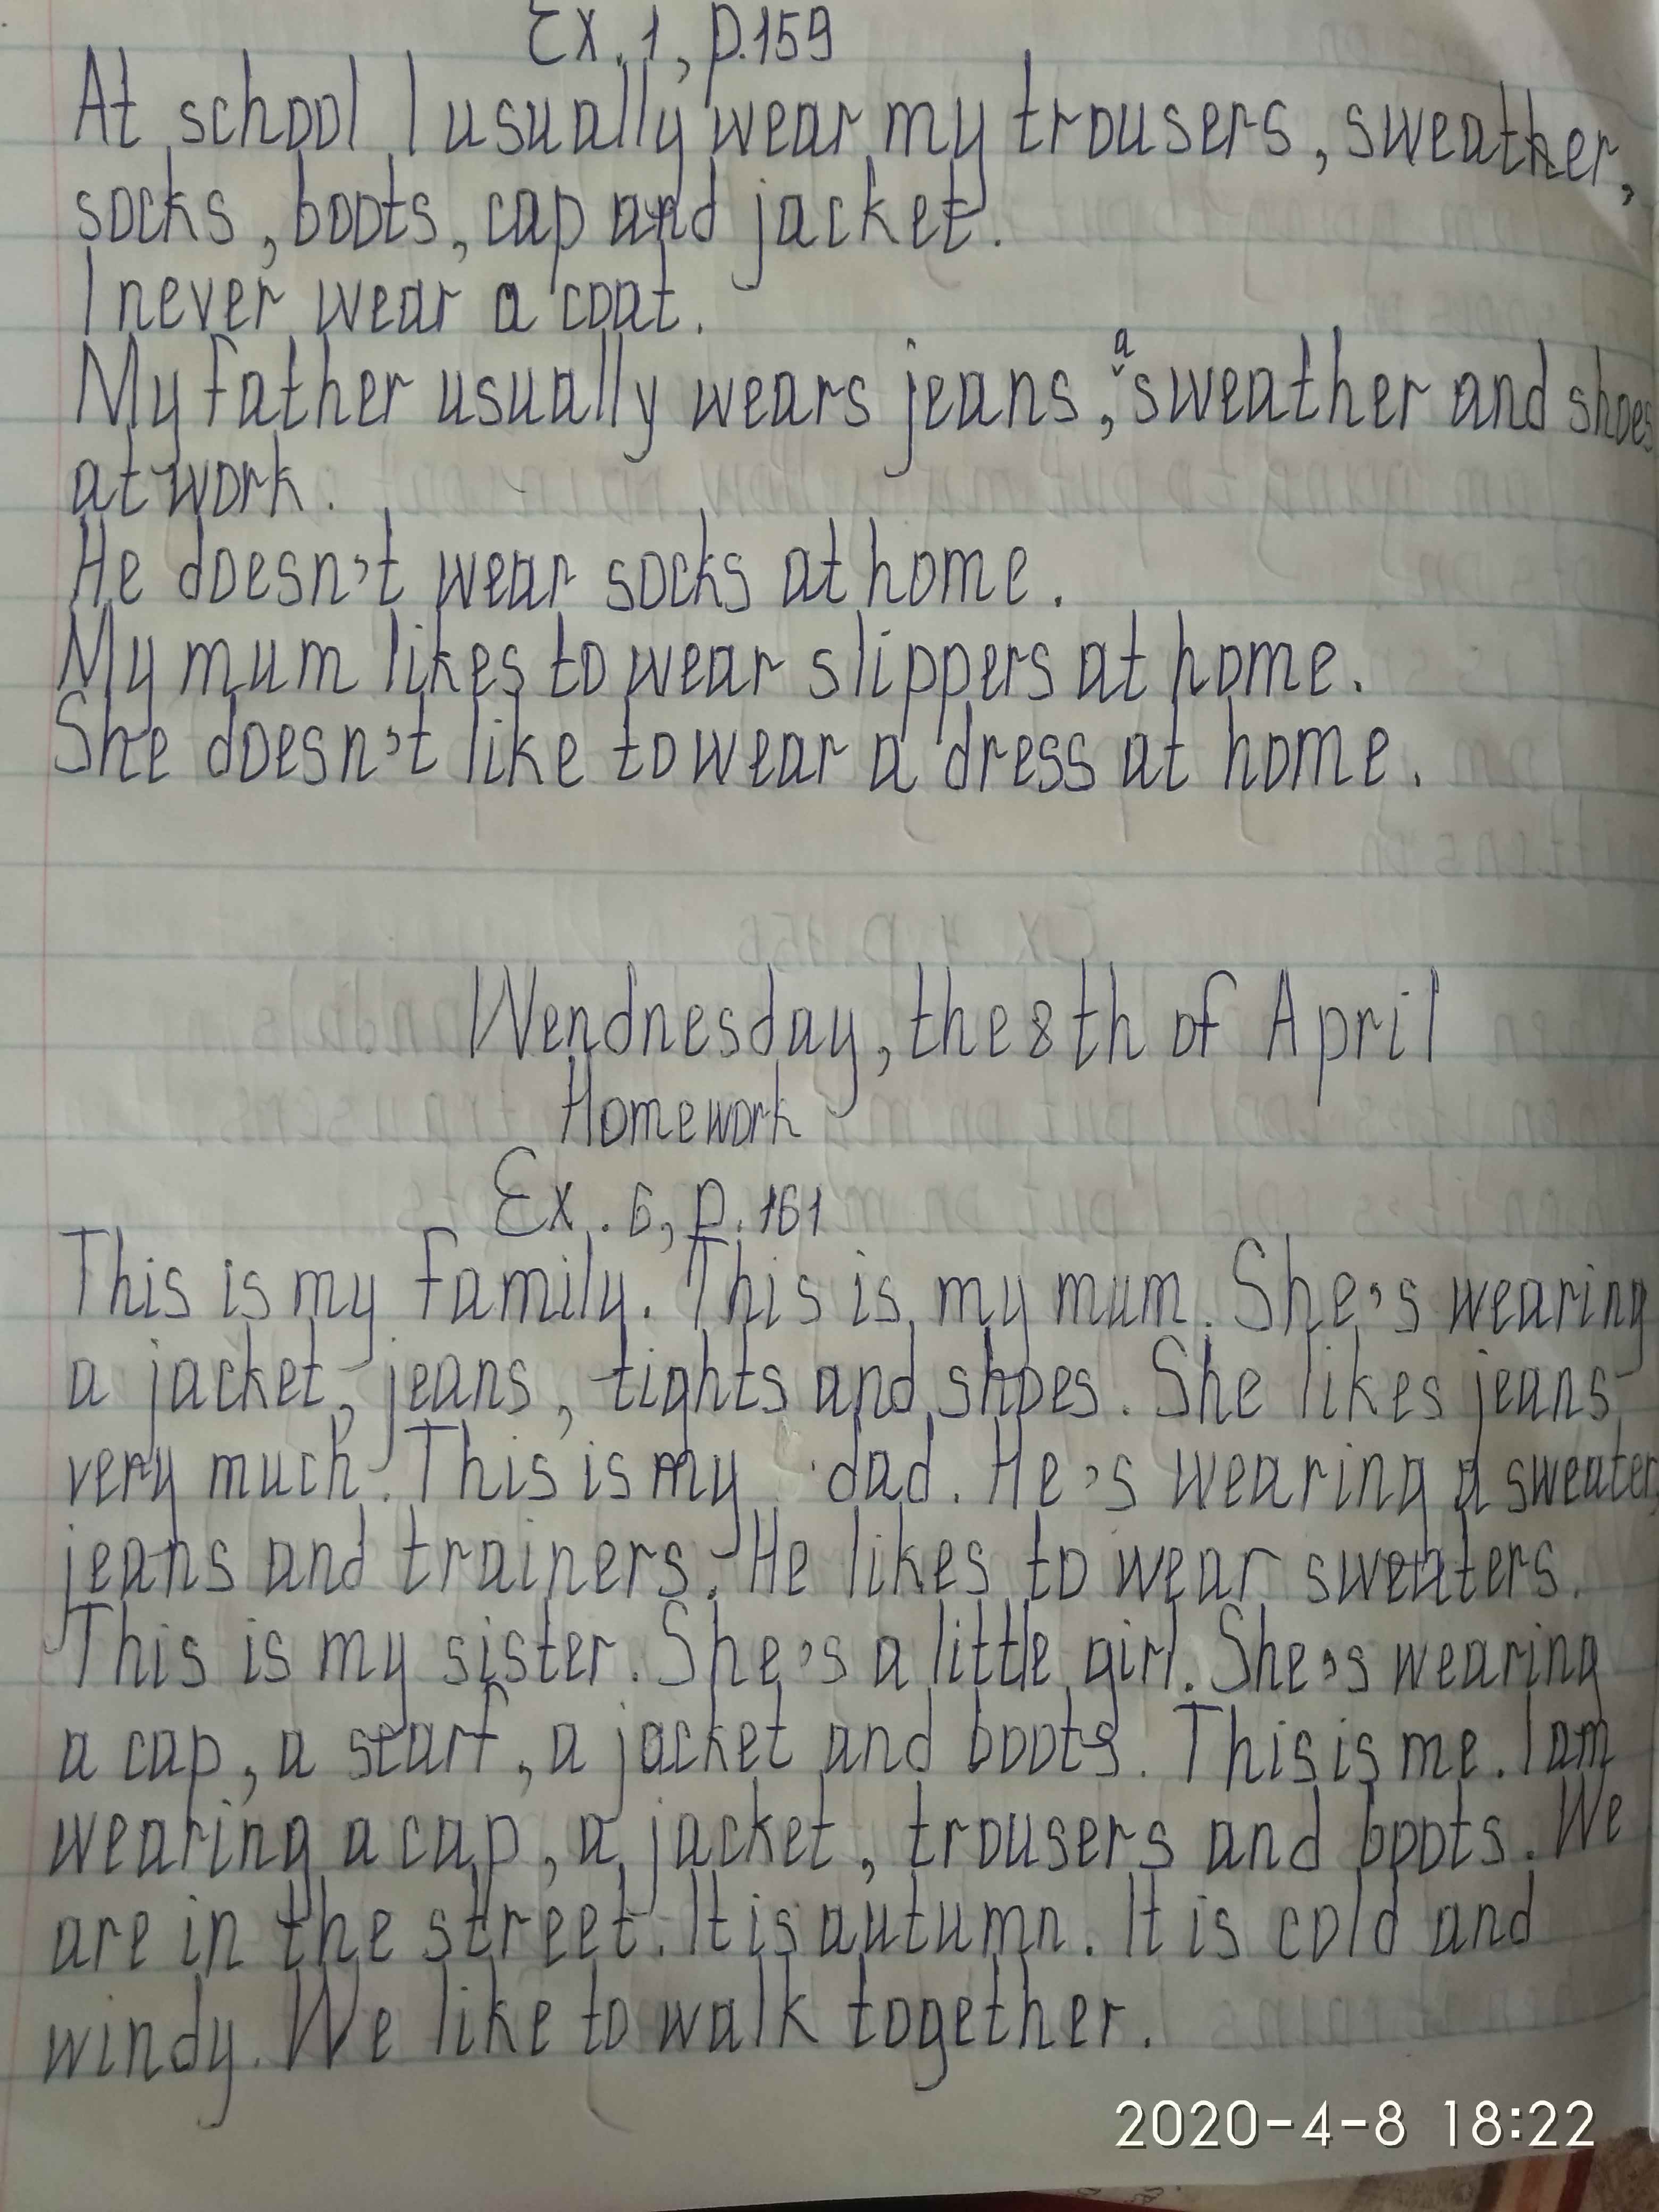 Ex. 1, p.159
At school I usually wear my trousers, sweather,
socks, boots, cap and jacket.
I never wear a coat.
My father usually wears jeans, a sweather and shoes
at work.
He doesn't wear socks at home.
My mum likes to wear slippers at home.
She doesn't like to wear a dress at home.
Wendnesday, the 8th of April
Homework
Ex. 6, p. 161
This is my family. This is my mum. She's wearing
a jacket, jeans, tights and shoes. She likes jeans
very much. This is my dad. He's wearing a sweater,
jeans and trainers. He likes to wear sweaters.
This is my sister. She's a little girl. She's wearing
a cap, a scarf, a jacket and boots. This is me. I am
wearing a cap, a jacket, trousers and boots. We
are in the street. It is autumn. It is cold and
windy. We like to walk together.
2020-4-8 18:22